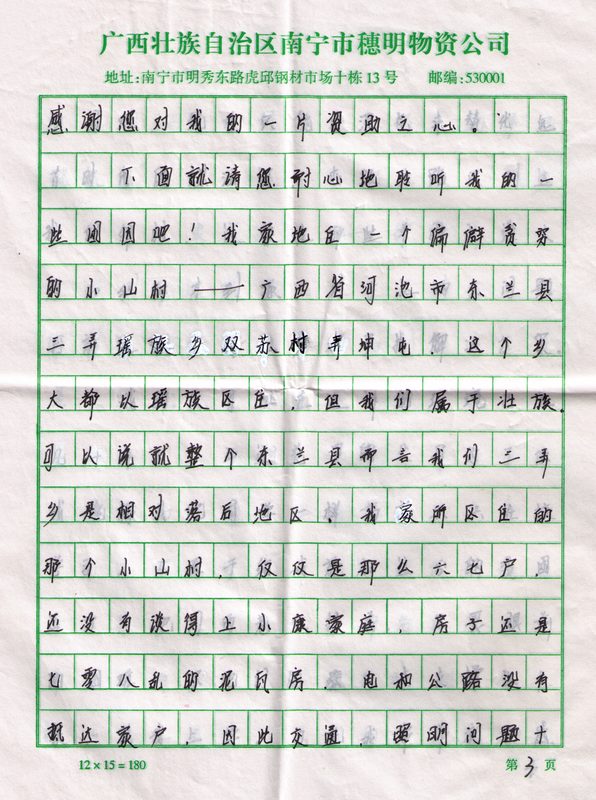 广西壮族自治区南宁市穗明物资公司
地址:南宁市明秀东路虎邱钢材市场十栋13号 邮编:530001
感谢您对我的一片资助之心。
下面就请您耐心地聆听我的一
些困因吧！我家地丘一个偏僻贫穷
的小山村——广西省河池市东兰县
三弄瑶族乡双苏村弄坤屯．这个乡
大都以瑶族区住，但我们属于壮族．
可以说就整个东兰县而言我们三弄
乡是相对落后地区．我家所区住的
那个小山村，仅仅是那么六七户．
还没有谈得上小康家庭，房子还是
七零八乱的泥瓦房．电和公路没有
抵达家户，因此交通，照明问题十
12×15=180 第3页